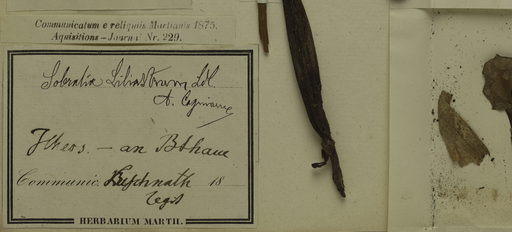 Communicatum e reliquiis Martianis 1875.
Aquisitions - Journal Nr. 229.
Sobralia Liliastrum Ldl.
A. Cogniaux
Ilheos. — an
Communic. Luschnath 18
legit
HERBARIUM MARTII.